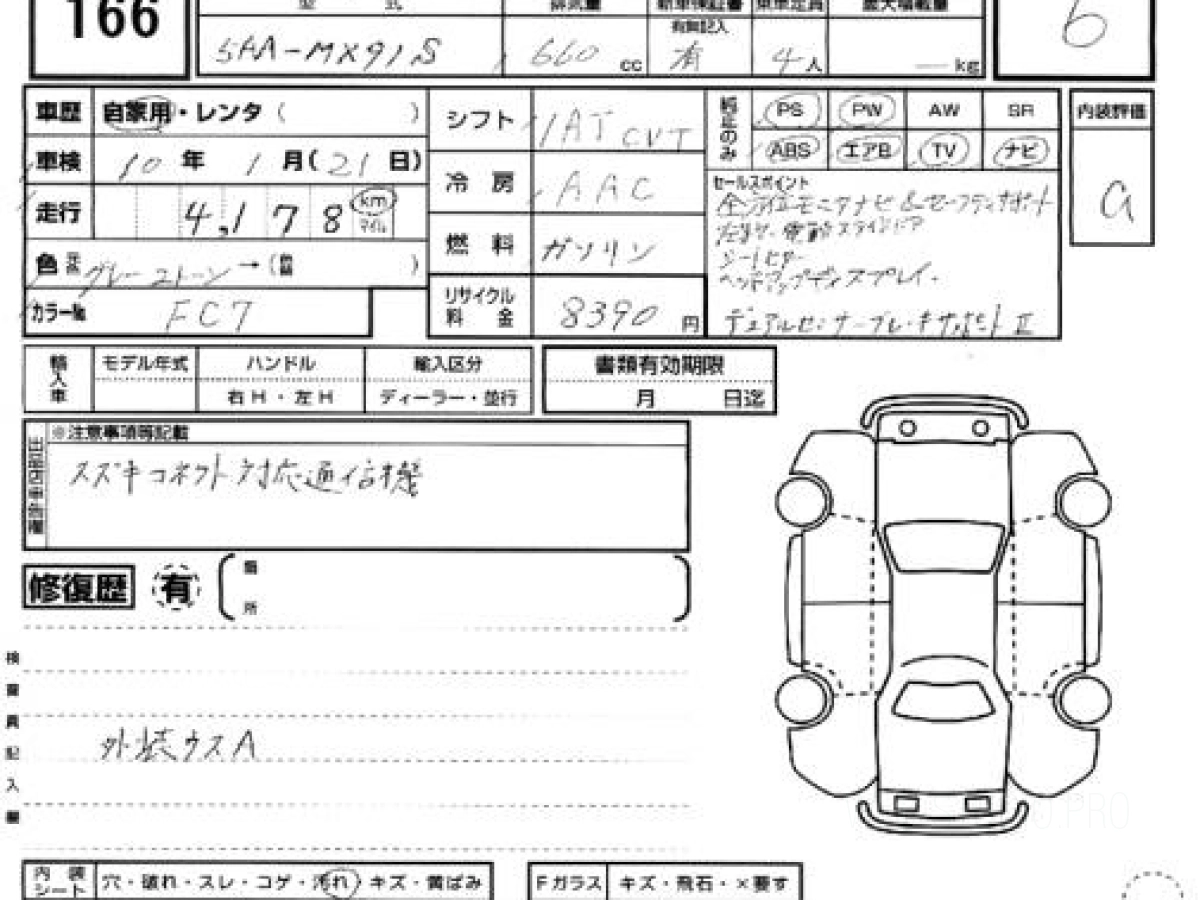 166
型 式 排気量 新車保証書 乗車定員 最大積載量
有無記入
5AA-MX91S 660 cc 有 4人 kg
6
車歴 自家用・レンタ( )
シフト IAT CVT
純正のみ PS PW AW SR
ABS エアB TV ナビ
内装評価
a
車検 10年 1月(21日)
冷房 AAC
セールスポイント
全方位モニタナビ &セーフティサポート
走行 4,178 km マイル
左右 電動スライドドア
シートヒーター
ヘッドアップディスプレイ.
デュアルセンサーブレーキサポートⅡ
燃料 ガソリン
色 グレー 2トーン→( )
カラー№ FC7
リサイクル料金 8390円
輸入車 モデル年式 ハンドル 輸入区分
右H・左H ディーラー・並行
書類有効期限
月 日迄
※注意事項等記載
スズキコネクト対応通信機
修復歴 有
箇所
検査員記入欄
外装ウスA
内装シート 穴・破れ・スレ・コゲ・汚れ・キズ・黄ばみ
Fガラス キズ・飛石・×要す